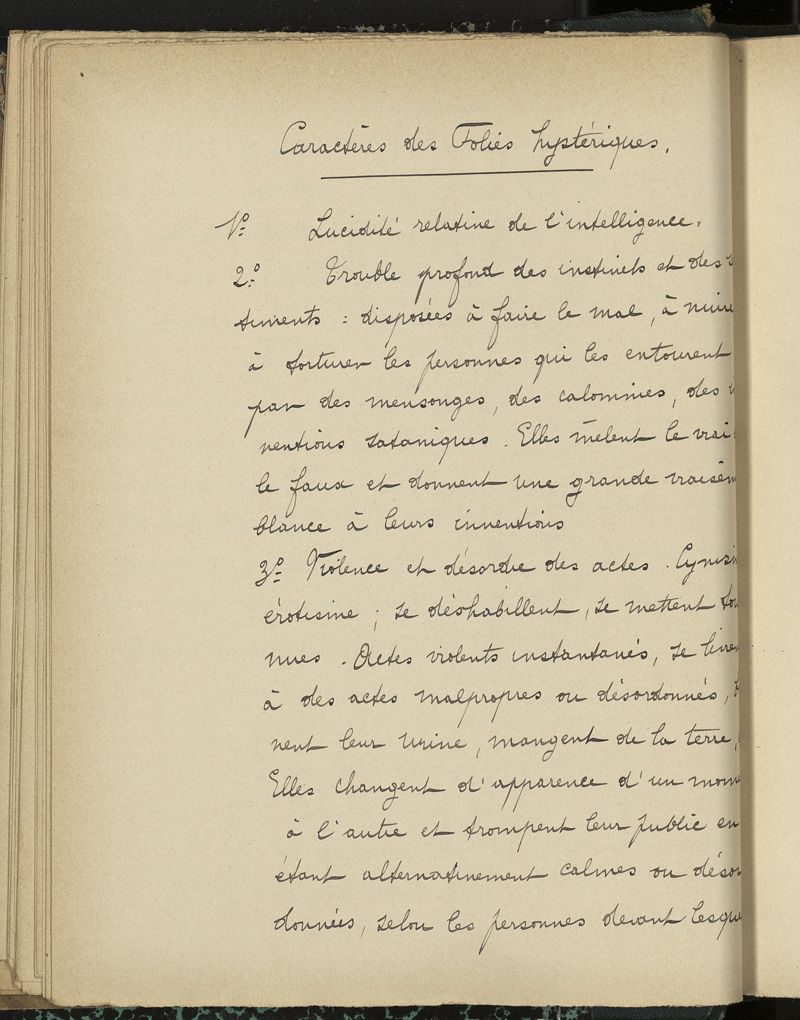 Caractères des Folies hystériques.
1º Lucidité relative de l'intelligence.
2º Trouble profond des instincts et des
timents : disposées à faire le mal, à nuire
à torturer les personnes qui les entourent
par des mensonges, des calomnies, des
ventions sataniques. Elles mêlent le vrai
le faux et donnent une grande vraisem
blance à leurs inventions
3º Violence et désordre des actes. Cynis
érotisme ; se déshabillent, se mettent tou
nues. Actes violents instantanés, se livre
à des actes malpropres ou désordonnés,
nent leur urine, mangent de la terre,
Elles changent d'apparence d'un mom
à l'autre et trompent leur public en
étant alternativement calmes ou désor
données, selon les personnes devant lesqu